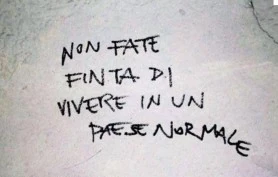 NON FATE
FINTA DI
VIVERE IN UN
PAESE NORMALE